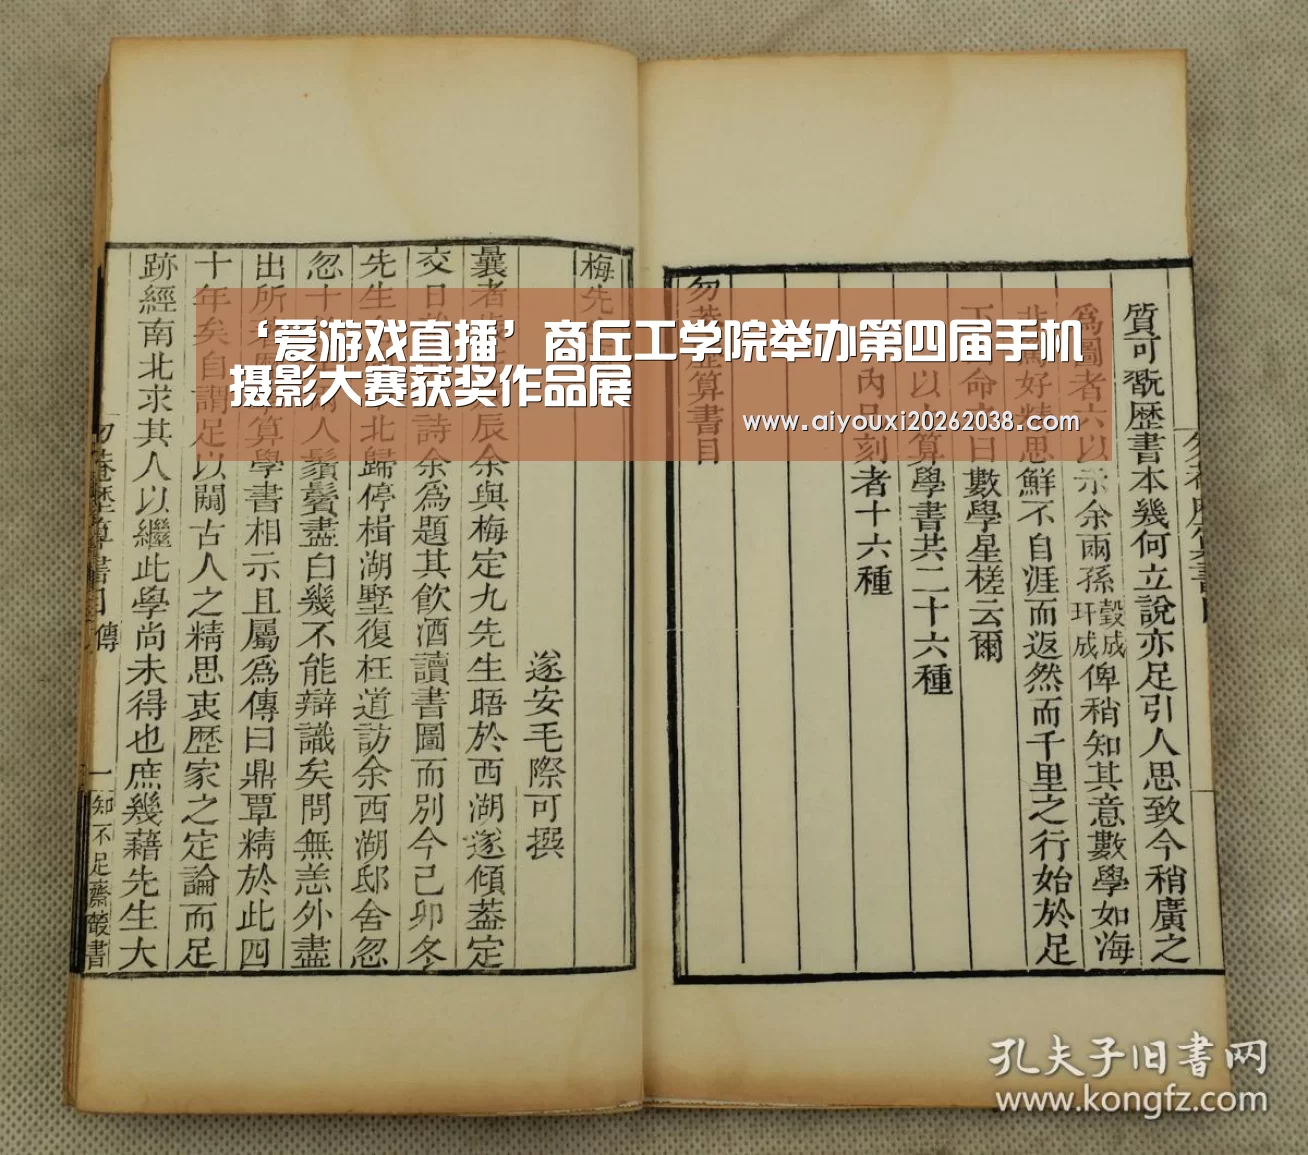 ‘爱游戏直播’商丘工学院举办第四届手机
摄影大赛获奖作品展
www.aiyouxi20262038.com
質可翫歴書本幾何立說亦足引人思致今稍廣之
為圖者六以示余兩孫瑴成玕成俾稍知其意數學如海
非好精思鮮不自涯而返然而千里之行始於足
下命曰數學星槎云爾
以算學書共二十六種
內已刻者十六種
勿菴歴算書目
梅先
遂安毛際可撰
曩者辰余與梅定九先生晤於西湖遂傾葢定
交日詩余為題其飲酒讀書圖而別今己卯冬
先生北歸停楫湖墅復枉道訪余西湖邸舍忽
忽十人鬚鬢盡白幾不能辯識矣問無恙外盡
出所算學書相示且屬為傳曰鼎覃精於此四
十年矣自謂足以闢古人之精思衷歴家之定論而足
跡經南北求其人以繼此學尚未得也庶幾藉先生大
勿菴歴算書目 傳
一
知不足齋叢書
孔夫子旧書网
www.kongfz.com